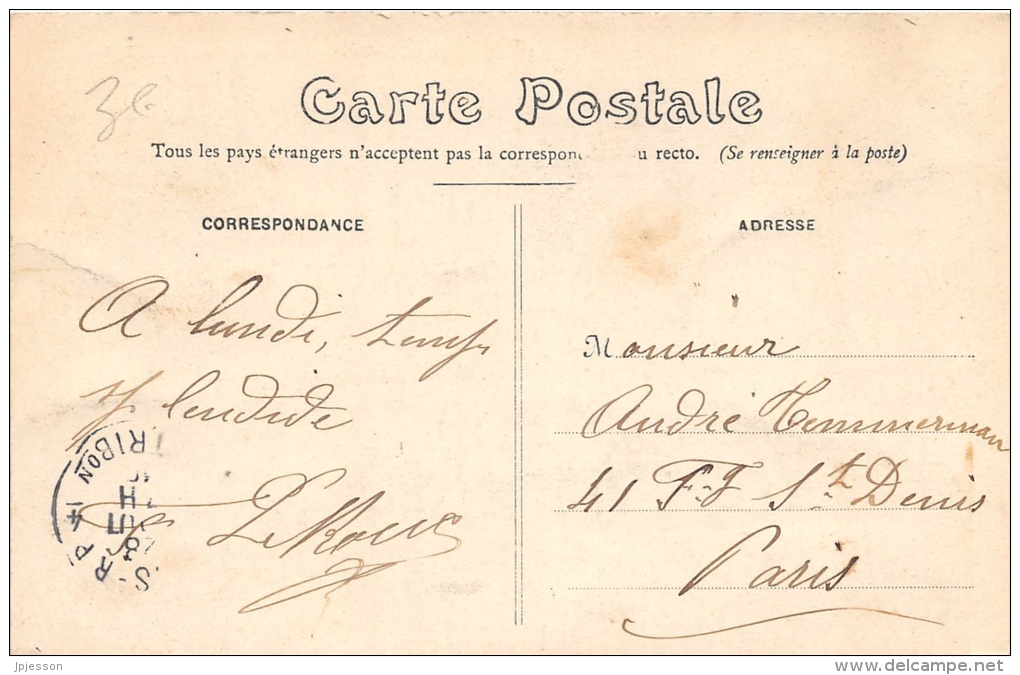 Carte Postale
Tous les pays étrangers n'acceptent pas la correspon u recto. (Se renseigner à la poste)
CORRESPONDANCE
ADRESSE
A lundi, temps
splendide
Monsieur
André Temmerman
41 Fg St Denis
Paris
TRIBON
jpjesson
www.delcampe.net